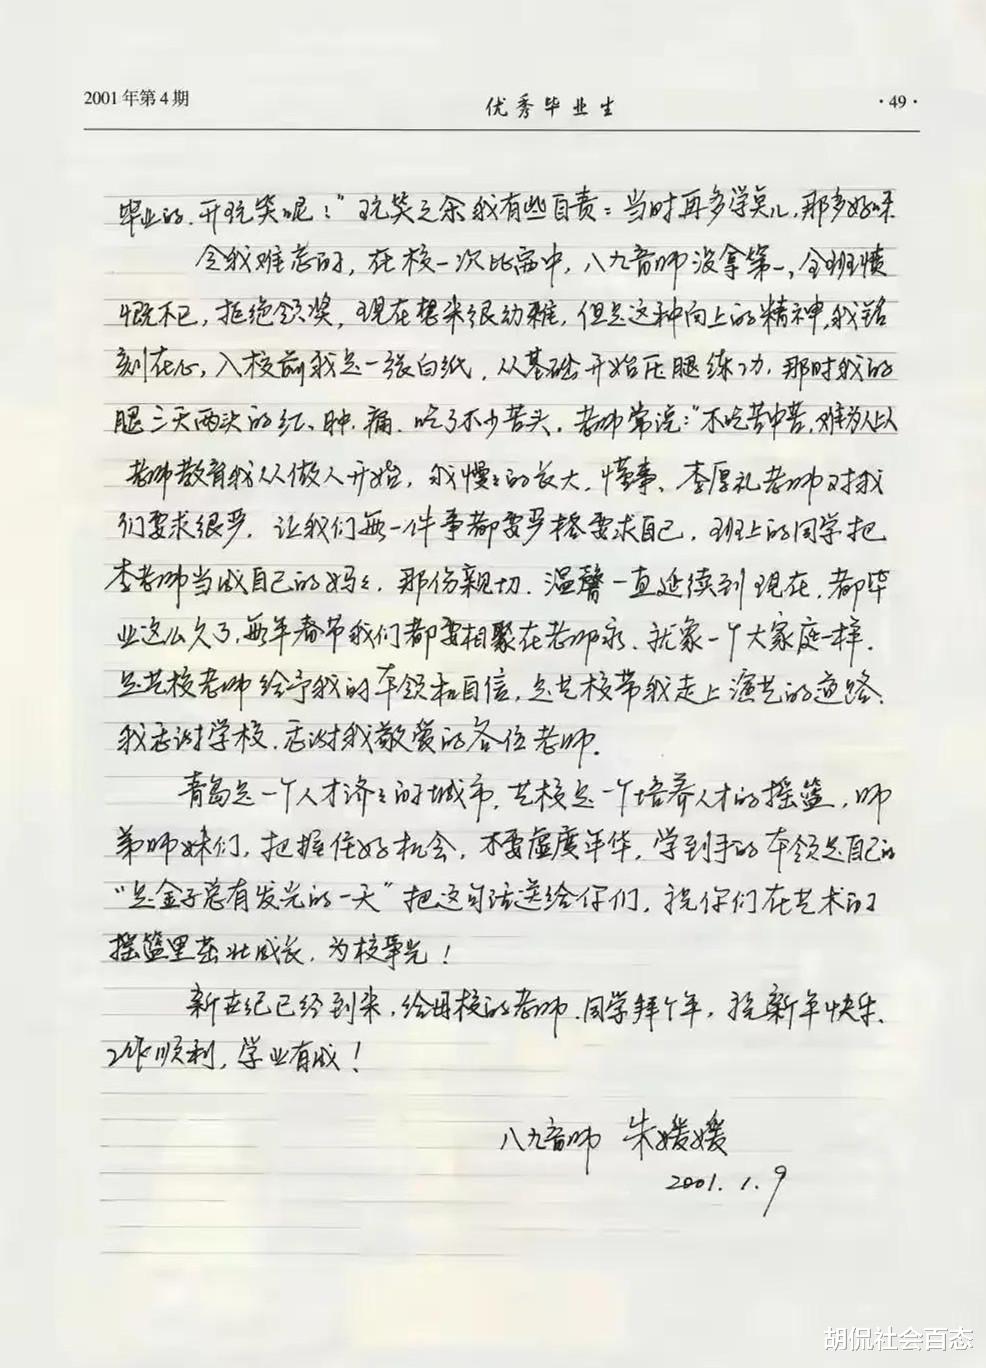 2001年第4期
优秀毕业生
·49·
毕业的,开玩笑呢!"玩笑之余我有些自责:当时再多学点儿,那多好呀
令我难忘的,在校一次比赛中,八九音师没拿第一,全班愤
慨不已,拒绝领奖,现在想来很幼稚,但是这种向上的精神,我铭
刻在心,入校前我是一张白纸,从基础开始压腿练功,那时我的
腿三天两头的红、肿、痛,吃了不少苦头,老师常说:"不吃苦中苦,难为人上人
老师教育我从做人开始,我慢慢的长大,懂事、李厚礼老师对我
们要求很严,让我们每一件事都要严格要求自己,班上的同学把
李老师当成自己的妈妈,那份亲切、温馨一直延续到现在,都毕
业这么久了,每年春节我们都要相聚在老师家,就象一个大家庭一样.
是艺校老师给予我的本领和自信,是艺校带我走上演艺的道路,
我感谢学校,感谢我敬爱的各位老师.
青岛是一个人才济济的城市,艺校是一个培养人才的摇篮,师
弟师妹们,把握住好机会,不要虚度年华,学到手的本领是自己的
"是金子总有发光的一天"把这句话送给你们,祝你们在艺术的
摇篮里茁壮成长,为校争光!
新世纪已经到来,给母校的老师、同学拜个年,祝新年快乐、
工作顺利,学业有成!
八九音师 朱媛媛
2001.1.9
胡侃社会百态